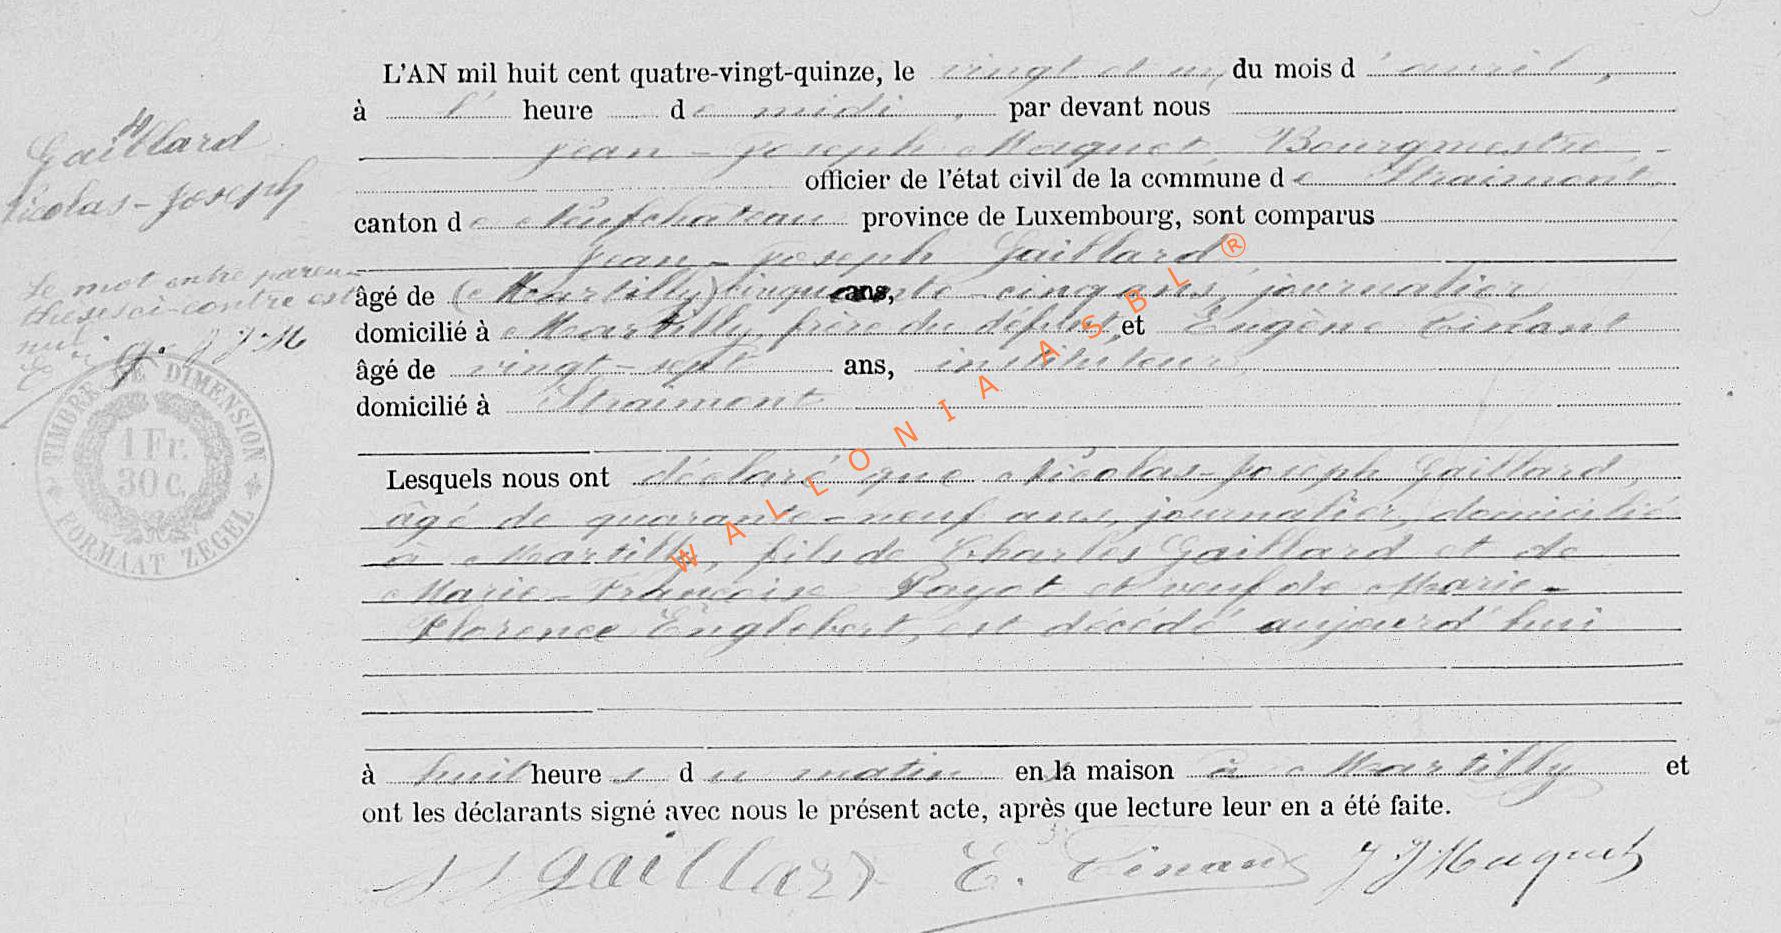 L'AN mil huit cent quatre-vingt-quinze, le vingt et un, du mois d'avril,
à l' heure de midi, par devant nous
Jean-Joseph Maquet, Bourgmestre,
officier de l'état civil de la commune de Straimont
canton de Neufchateau province de Luxembourg, sont comparus
Jean-Joseph Gaillard,
âgé de (Martilly) cinquante-cinq ans, journalier
domicilié à Martilly, frère du défunt, et Eugène Tinant
âgé de vingt-sept ans, instituteur,
domicilié à Straimont
Lesquels nous ont déclaré que Nicolas-Joseph Gaillard,
âgé de quarante-neuf ans, journalier, domicilié
à Martilly, fils de Charles Gaillard et de
Marie-Françoise Payot et veuf de Marie-
Florence Englebert, est décédé aujourd'hui
à huit heures du matin en sa maison à Martilly et
ont les déclarants signé avec nous le présent acte, après que lecture leur en a été faite.
JJ Gaillard E. Tinant J J Maquet
Gaillard
Nicolas-Joseph
Le mot entre paren-
thèses ci-contre est
nul
J J M
TIMBRE DE DIMENSION
1 Fr.
30 c.
FORMAAT ZEGEL
WALLONIA ASBL ®